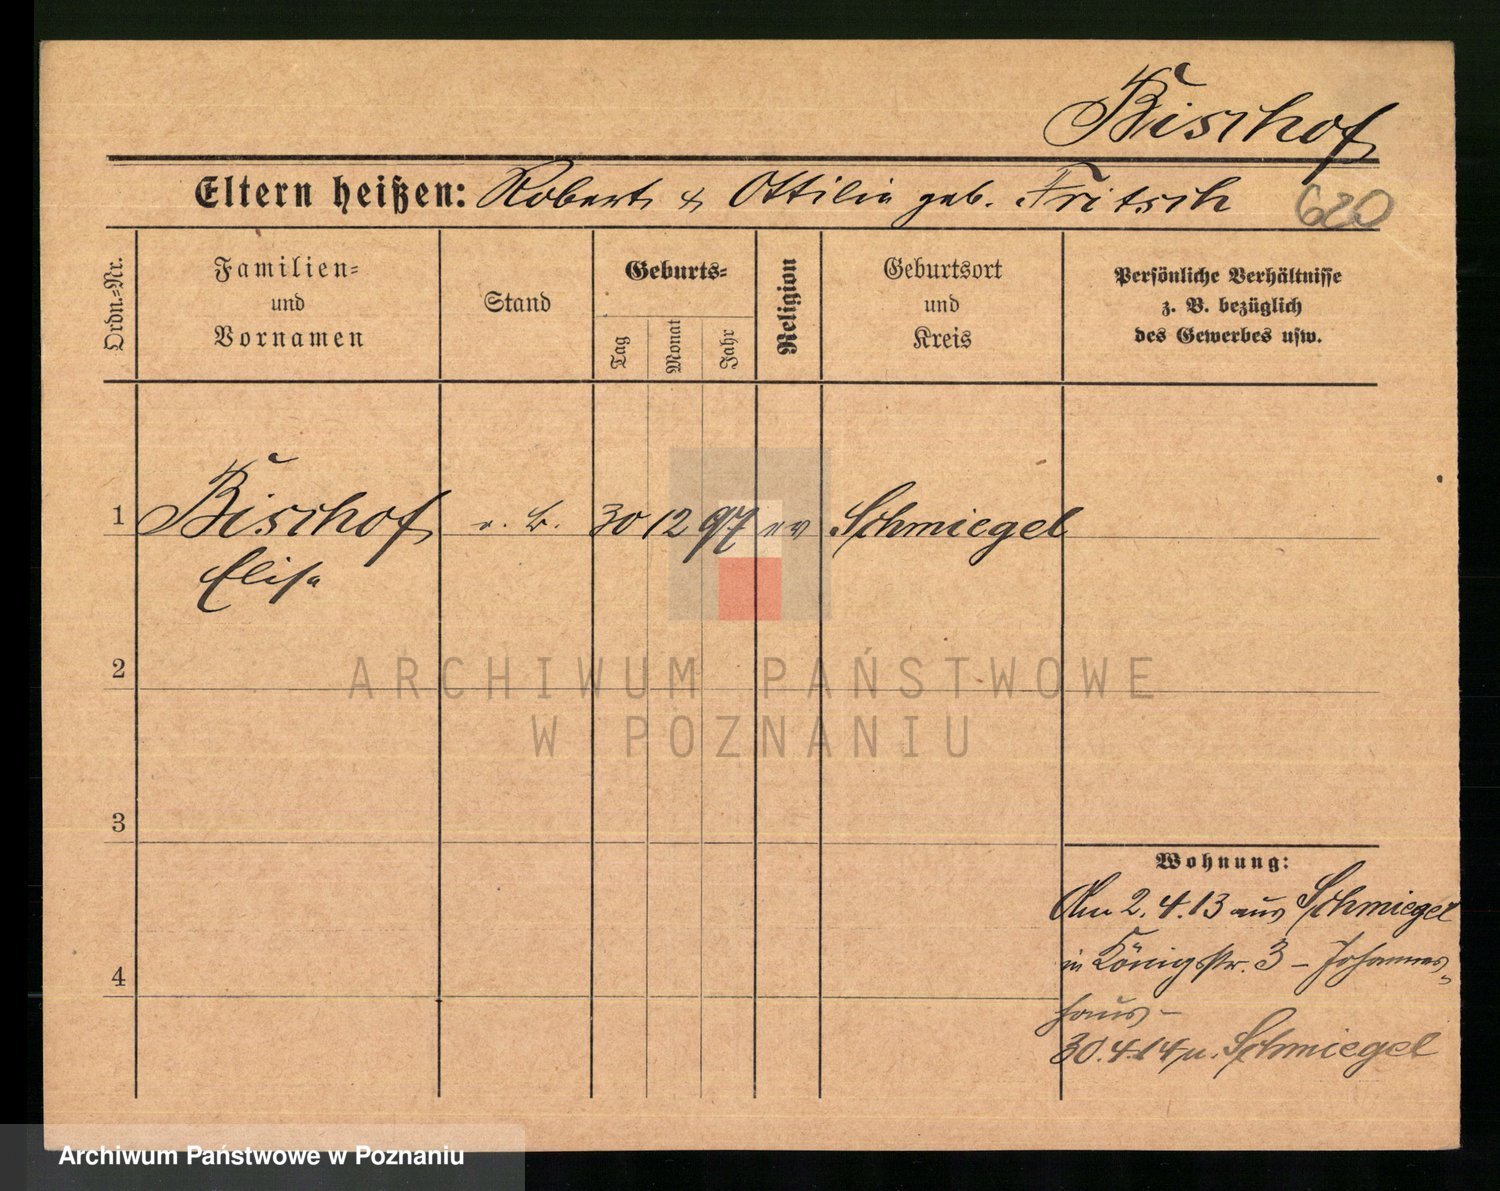 Bischof
Eltern heißen: Robert & Ottilie geb. Fritsch 620
Ordn.=Nr.
Familien=
und
Vornamen
Stand
Geburts=
Tag
Monat
Jahr
Religion
Geburtsort
und
Kreis
Persönliche Verhältnisse
z. B. bezüglich
des Gewerbes usw.
1 Bischof 30 12 97 ev Schmiegel
Elise
2
ARCHIWUM PAŃSTWOWE
W POZNANIU
3
4
Wohnung:
Am 2.4.13 aus Schmiegel
in Königstr. 3 – Johannes-
haus –
30.4.14 n. Schmiegel
Archiwum Państwowe w Poznaniu